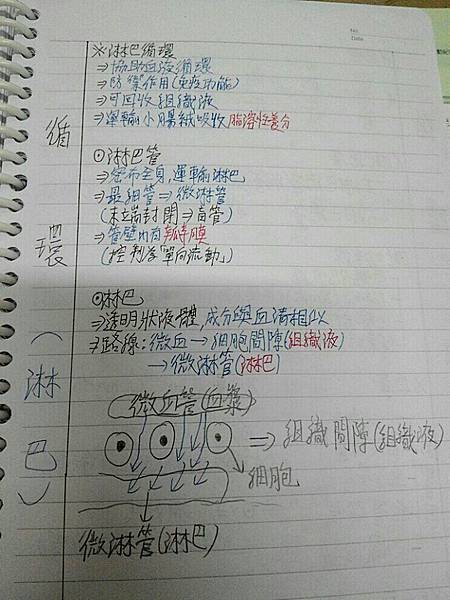 No.
Date
循環(淋巴)
※淋巴循環
⇒協助血液循環
⇒防禦作用(免疫功能)
⇒可回收組織液
⇒運輸小腸絨吸收脂溶性養分
⊙淋巴管
⇒密布全身,運輸淋巴
⇒最細管⇒微淋管
(末端封閉⇒盲管)
⇒管壁內有瓣膜
(控制為「單向流動」)
⊙淋巴
⇒透明狀液體,成分與血清相似
⇒路線:微血→細胞間隙(組織液)
→微淋管(淋巴)
微血管(血漿)
⇒組織間隙(組織液)
細胞
微淋管(淋巴)